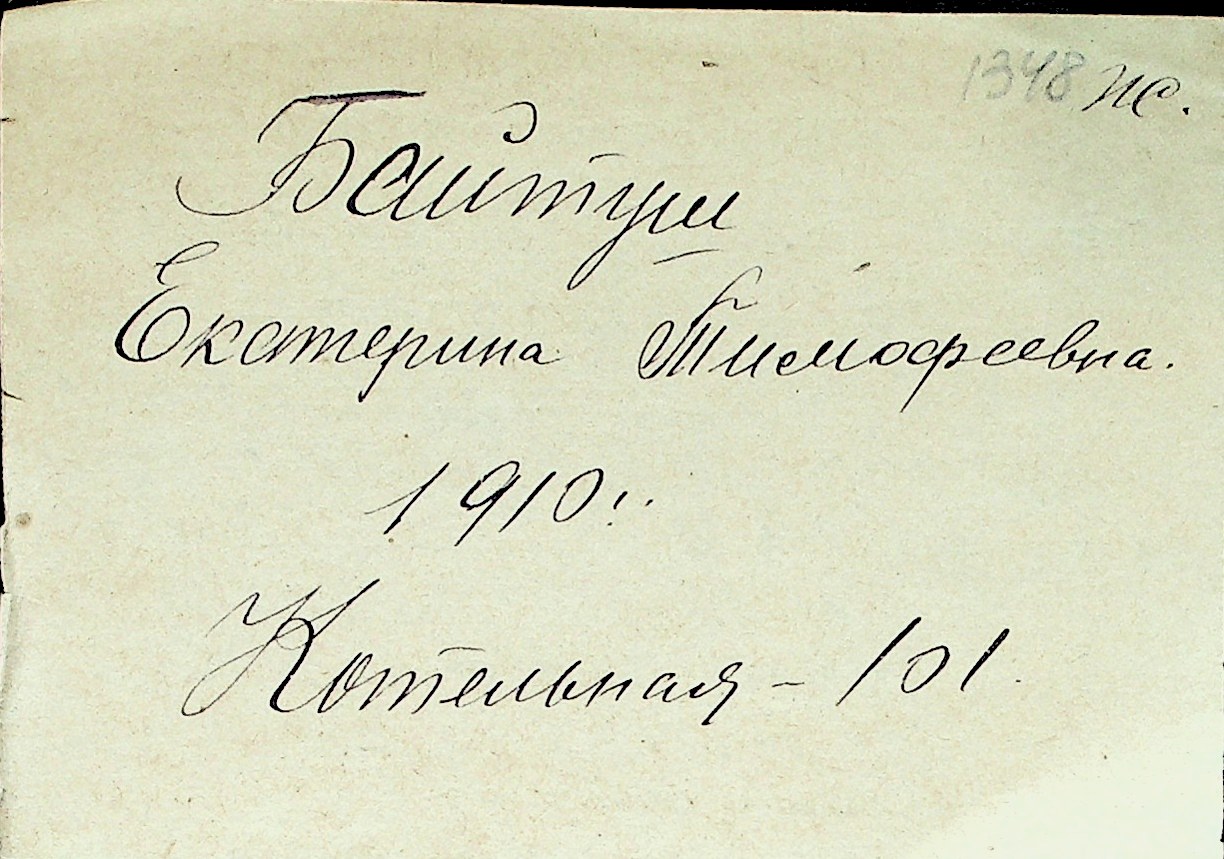 1348 ж.
Байтуш
Екатерина Тимофеевна.
1910г.
Котельная - 101.